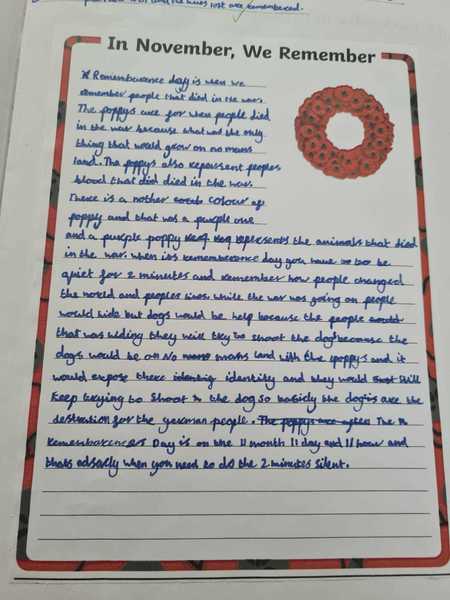 and the lives lost are remembered.
In November, We Remember
Rememberence day is when we
remember people that died in the war.
The poppys are for when people died
in the war because what was the only
thing that would grow on no mens
land. The poppys also repersent peoples
blood that did died in the war.
There is a nother colour of
poppy and that was a purple one
and a purple poppy represents the animals that died
in the war. when its rememberence day you have to be
quiet for 2 minutes and remember how people changed
the world and peoples lives. while the war was going on people
would hide but dogs would be help because the people
that was hiding they will try to shoot the dog because the
dogs would be on No mans land with the poppys and it
would expose there identity and they would still
keep trying to shoot the dog so basicly the dog is are the
destraction for the german people. The poppys are The
Rememberences Day is on the 11 month 11 day and 11 hour and
thats when you need to do the 2 minutes silent.